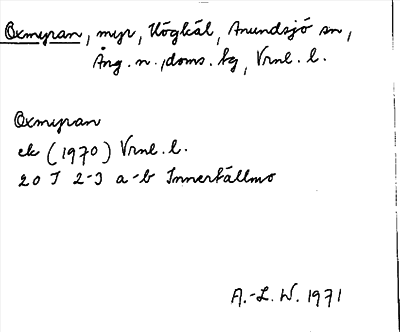 Oxmyran, myr, Högkål, Anundsjö sn,
Ång. n., doms. kg, Vrnl. l.
Oxmyran
ek (1970) Vrnl. l.
20 I 2-3 a-b Innertällmo
A.-L. W. 1971